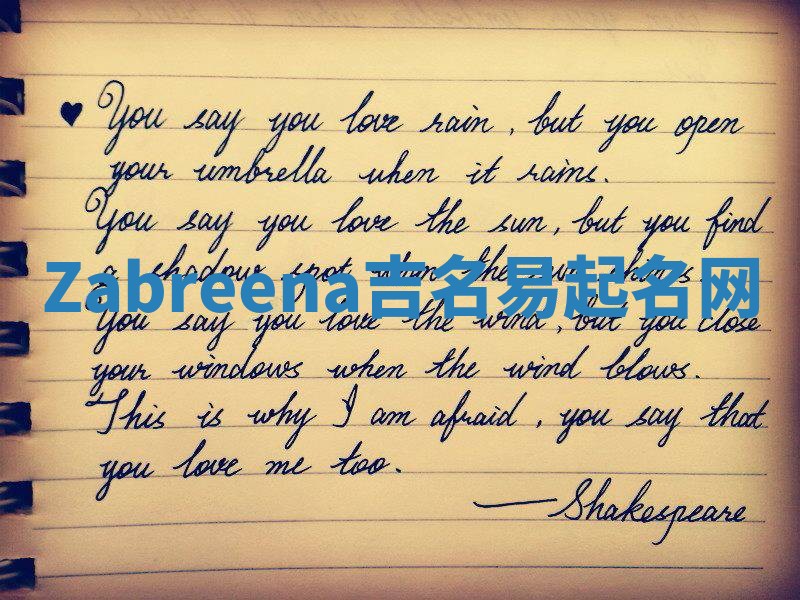 ♥ You say you love rain, but you open
your umbrella when it rains.
You say you love the sun, but you find
a shadow spot when the sun shines.
Zabreena吉名易起名网
You say you love the wind, but you close
your windows when the wind blows.
This is why I am afraid, you say that
you love me too.
—Shakespeare